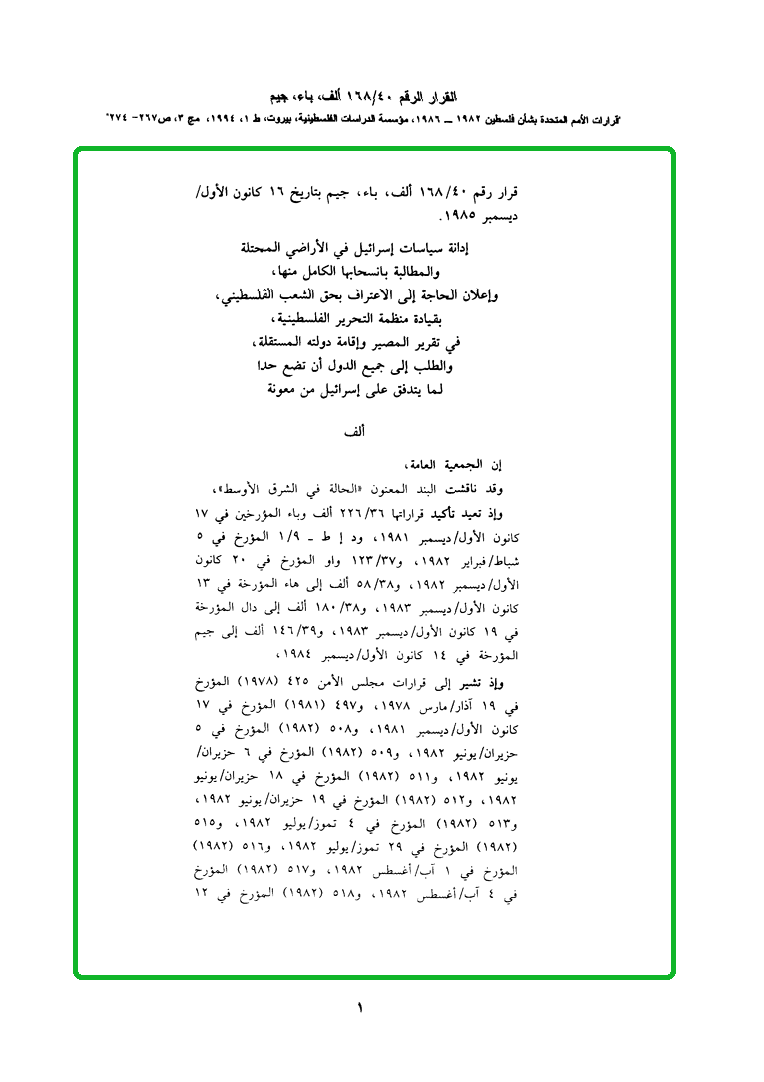 القرار الرقم ١٦٨/٤٠ ألف، باء، جيم
"قرارات الأمم المتحدة بشأن فلسطين ١٩٨٢ ــ ١٩٨٦، مؤسسة الدراسات الفلسطينية، بيروت، ط ١، ١٩٩٤، مج ٣، ص٢٦٧- ٢٧٤"
قرار رقم ١٦٨/٤٠ ألف، باء، جيم بتاريخ ١٦ كانون الأول/
ديسمبر ١٩٨٥.
إدانة سياسات إسرائيل في الأراضي المحتلة
والمطالبة بانسحابها الكامل منها،
وإعلان الحاجة إلى الاعتراف بحق الشعب الفلسطيني،
بقيادة منظمة التحرير الفلسطينية،
في تقرير المصير وإقامة دولته المستقلة،
والطلب إلى جميع الدول أن تضع حدا
لما يتدفق على إسرائيل من معونة
ألف
إن الجمعية العامة،
وقد ناقشت البند المعنون «الحالة في الشرق الأوسط»،
وإذ تعيد تأكيد قراراتها ٢٢٦/٣٦ ألف وباء المؤرخين في ١٧
كانون الأول/ديسمبر ١٩٨١، ود إ ط ـ ١/٩ المؤرخ في ٥
شباط/فبراير ١٩٨٢، و١٢٣/٣٧ واو المؤرخ في ٢٠ كانون
الأول/ديسمبر ١٩٨٢، و٥٨/٣٨ ألف إلى هاء المؤرخة في ١٣
كانون الأول/ديسمبر ١٩٨٣، و١٨٠/٣٨ ألف إلى دال المؤرخة
في ١٩ كانون الأول/ديسمبر ١٩٨٣، و١٤٦/٣٩ ألف إلى جيم
المؤرخة في ١٤ كانون الأول/ديسمبر ١٩٨٤،
وإذ تشير إلى قرارات مجلس الأمن ٤٢٥ (١٩٧٨) المؤرخ
في ١٩ آذار/مارس ١٩٧٨، و٤٩٧ (١٩٨١) المؤرخ في ١٧
كانون الأول/ديسمبر ١٩٨١، و٥٠٨ (١٩٨٢) المؤرخ في ٥
حزيران/يونيو ١٩٨٢، و٥٠٩ (١٩٨٢) المؤرخ في ٦ حزيران/
يونيو ١٩٨٢، و٥١١ (١٩٨٢) المؤرخ في ١٨ حزيران/يونيو
١٩٨٢، و٥١٢ (١٩٨٢) المؤرخ في ١٩ حزيران/يونيو ١٩٨٢،
و٥١٣ (١٩٨٢) المؤرخ في ٤ تموز/يوليو ١٩٨٢، و٥١٥
(١٩٨٢) المؤرخ في ٢٩ تموز/يوليو ١٩٨٢، و٥١٦ (١٩٨٢)
المؤرخ في ١ آب/أغسطس ١٩٨٢، و٥١٧ (١٩٨٢) المؤرخ
في ٤ آب/أغسطس ١٩٨٢، و٥١٨ (١٩٨٢) المؤرخ في ١٢
١